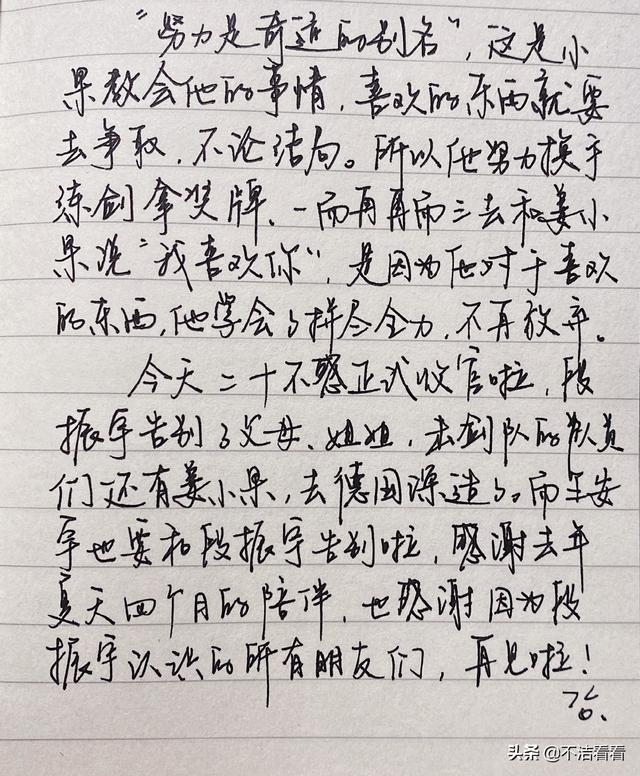 “努力是奇迹的别名”，这是小
果教会他的事情，喜欢的东西就要
去争取，不论结局。所以他努力换手
练剑拿奖牌，一而再再而三去和姜小
果说“我喜欢你”，是因为他对于喜欢
的东西，他学会了拼尽全力，不再放弃。
今天二十不惑正式收官啦，段
振宇告别了父母、姐姐，击剑队的队员
们还有姜小果，去德国深造了。而王安
宇也要和段振宇告别啦，感谢去年
夏天四个月的陪伴，也感谢因为段
振宇认识的所有朋友们，再见啦！
头条 @不洁看看